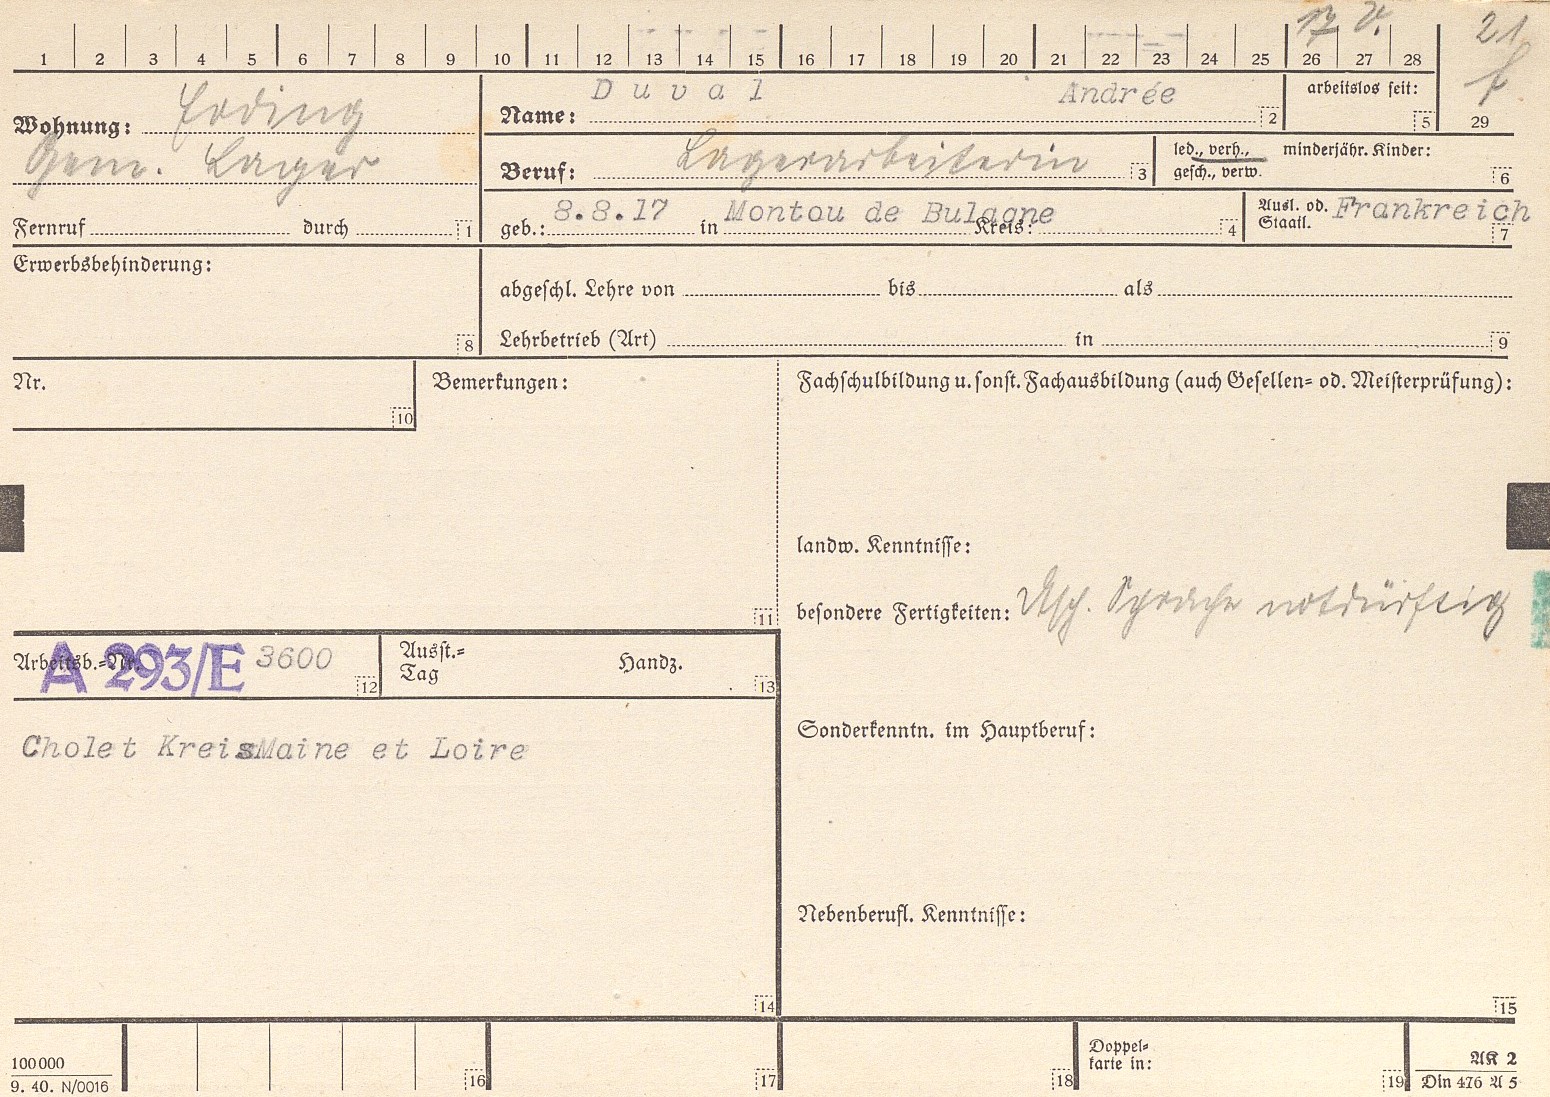 1 2 3 4 5 6 7 8 9 10 11 12 13 14 15 16 17 18 19 20 21 22 23 24 25 26 27 28
21
29
arbeitslos seit:
5
Wohnung: Erding
Gem. Lager
Name: Duval Andrée
2
Beruf: Lagerarbeiterin
3
led., verh., minderjähr. Kinder:
gesch., verw.
6
Fernruf durch
1
geb.: 8.8.17 in Montou de Bulagne Kreis:
4
Ausl. od. Frankreich
Staatl.
7
Erwerbsbehinderung:
8
abgeschl. Lehre von bis als
Lehrbetrieb (Art) in
9
Nr.
10
Bemerkungen:
11
Fachschulbildung u. sonst. Fachausbildung (auch Gesellen= od. Meisterprüfung):
landw. Kenntnisse:
besondere Fertigkeiten: Dtsch. Sprache notdürftig
Arbeitsb.=Nr. A 293/E 3600
12
Ausst.=
Tag
Handz.
13
Cholet Kreis Maine et Loire
14
Sonderkenntn. im Hauptberuf:
Nebenberufl. Kenntnisse:
15
100000
9. 40. N/0016
16
17
18
Doppel=
karte in:
19
AK 2
Din 476 A 5